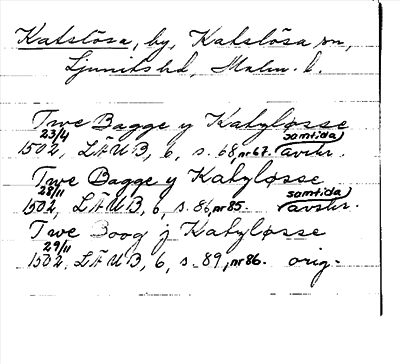 Katslösa, by, Katslösa sn,
Ljunits hd, Malm. l.
Twe Bagge y Katyløsse
23/4 samtida
1502, LÄUB, 6, s. 68, nr 67. avskr.
Twe Bagge y Katyløsse
28/11 samtida
1502, LÄUB, 6, s. 86, nr 85. avskr.
Twe Boog j Katyløsse
29/11
1502, LÄUB, 6, s. 89, nr 86. orig.